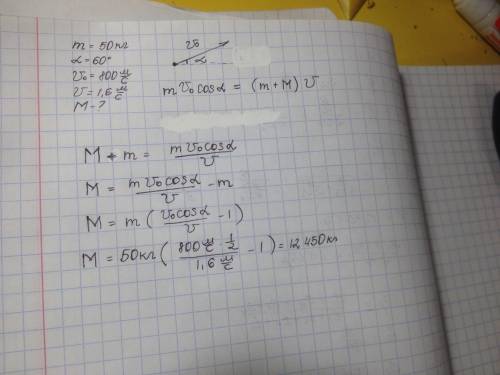 m = 50кг
α = 60°
v₀ = 800 м/с
v = 1,6 м/с
M - ?
v₀
α
m v₀ cosα = (m + M) v
M + m = m v₀ cosα / v
M = m v₀ cosα / v - m
M = m ( v₀ cosα / v - 1 )
M = 50кг ( 800 м/с · 1/2 / 1,6 м/с - 1 ) = 12 450 кг